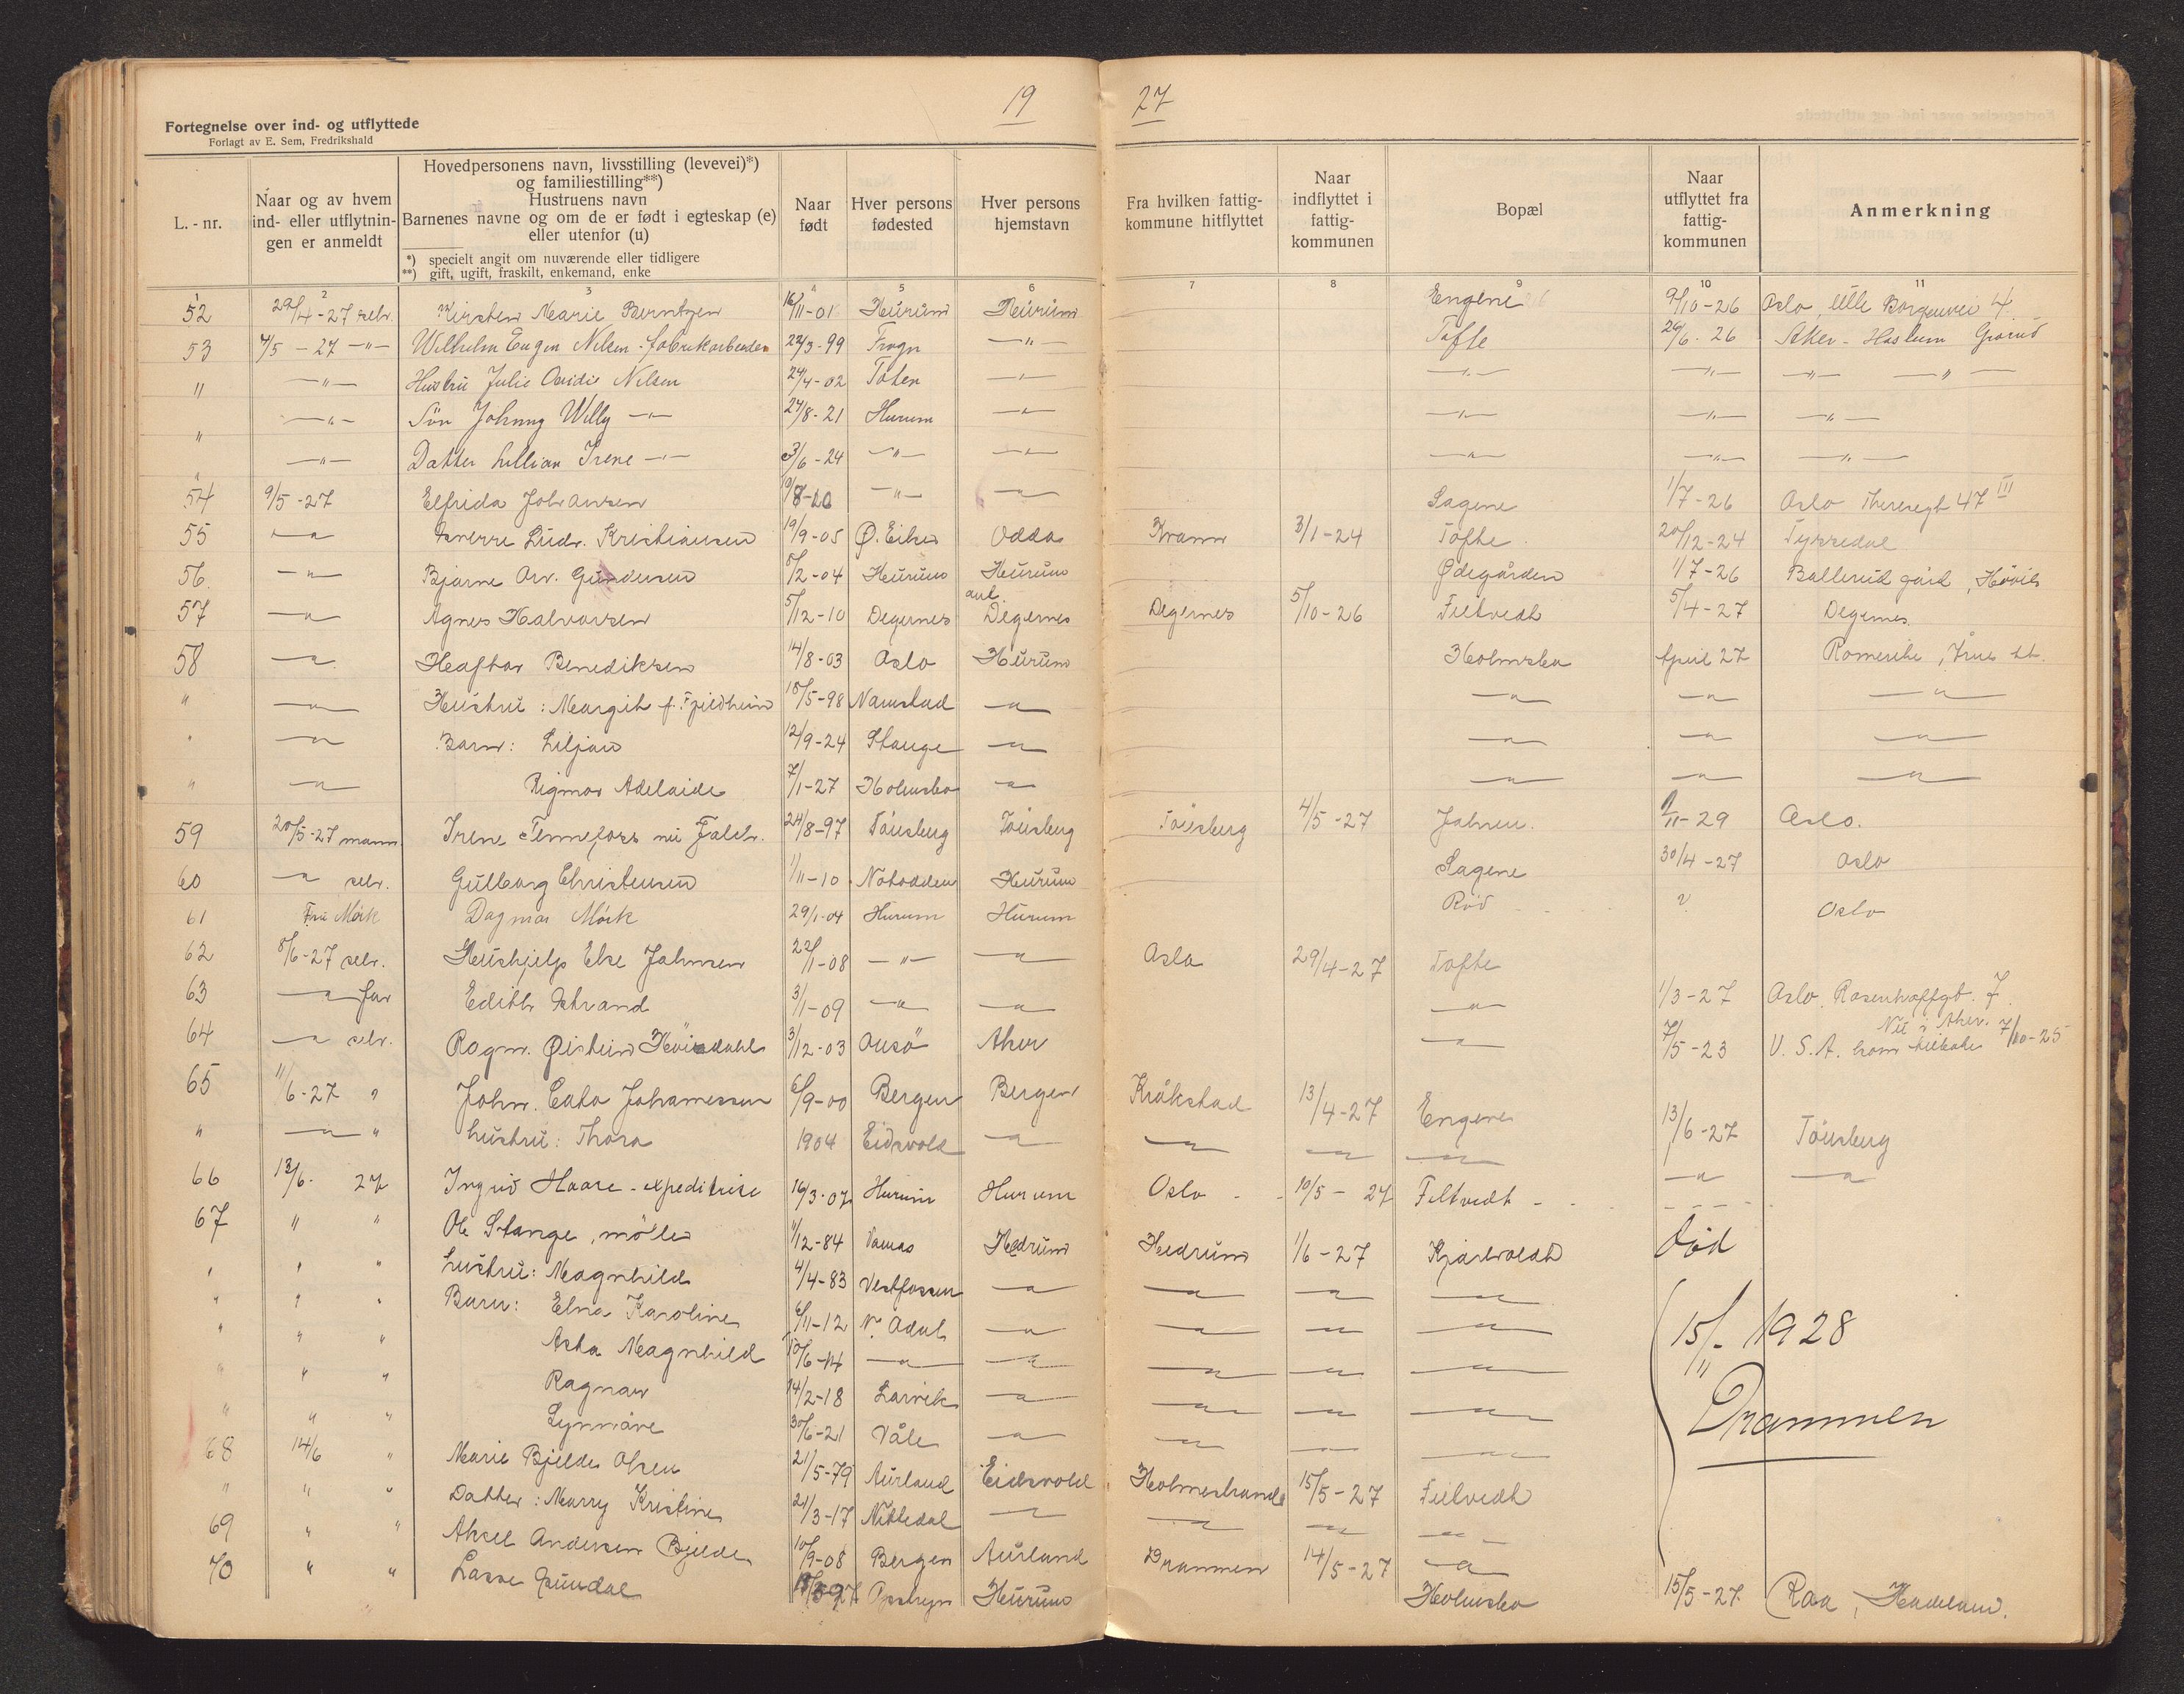 19 27
Fortegnelse over ind- og utflyttede
Forlagt av E. Sem, Fredrikshald
L. - nr.
Naar og av hvem ind- eller utflytningen er anmeldt
Hovedpersonens navn, livsstilling (levevei)*)
og familiestilling**)
Hustruens navn
Barnenes navne og om de er født i egteskap (e)
eller utenfor (u)
*) specielt angit om nuværende eller tidligere
**) gift, ugift, fraskilt, enkemand, enke
Naar født
Hver persons fødested
Hver persons hjemstavn
Fra hvilken fattigkommune hitflyttet
Naar indflyttet i fattigkommunen
Bopæl
Naar utflyttet fra fattigkommunen
Anmerkning
1 2 3 4 5 6 7 8 9 10 11
52 29/4-27 selv. Kirsten Marie Berntzen 16/11-01 Hurum Hurum Engene 9/10-26 Oslo, Lille Borgenvei 4
53 4/5-27 -"- Wilhelm Eugen Nilsen - fabrikarbeider 22/3-99 Frogn -"- Tofte 26/6-26 Aker - Haslum Grorud
" -"- Hustru Julie Nilsen 24/4-02 Toten -"- -"- -"- -"- -"-
" -"- Sön Johnny Willy -"- 24/8-21 Hurum -"- -"- -"- -"-
" -"- Datter Lillian Irene -"- 3/6-24 -"- -"- -"- -"- -"-
54 9/5-27 Elfrida Johansen 10/8- -"- -"- Sagene 1/7-26 Oslo Theresegt 47 III
55 -"- Sverre Ludv. Kristiansen 19/9-05 Ø. Eiker Odda Kvam 3/1-24 Tofte 20/12-24 Tyssedal
56 -"- Bjarne Arv. Gundersen 5/2-04 Hurum Hurum Ødegården 1/7-26 Ballerud gård, Hövik
57 -"- Agnes Halvorsen 5/12-10 Degernes ant. Degernes Degernes 5/10-26 Filtvedt 5/4-27 Degernes
58 -"- Haftor Benediksen 14/8-03 Oslo Hurum Holmsbo April 27 Romerike, Årnes st.
" -"- Hustru: Margit f. Fjeldheim 15/5-98 Namstad -"- -"- -"- -"-
" -"- Barn: Liljan 12/9-24 Stange -"- -"- -"- -"-
" -"- Rigmor Adelaide 7/1-27 Holmsbo -"- -"- -"- -"-
59 20/5-27 mann Irene Tennefoss 24/8-97 Tönsberg Tönsberg Tönsberg 4/5-27 Jahren. /11-29 Oslo.
60 -"- selv. Gulborg Christensen 1/11-10 Notodden Hurum Sagene 30/4-27 Oslo
61 Fru Mörk Dagmar Mörk 29/1-04 Hurum Hurum Röd ? Oslo
62 8/6-27 selv. Hushjelp Else Jahnsen 22/1-08 -"- -"- Oslo 29/4-27 Tofte
63 -"- far Edith Strand 3/1-09 -"- -"- -"- 1/3-27 Oslo. Rosenhoffgt. 7.
64 -"- selv. Ragnv. Øistein Höisdahl 3/12-03 Onsö Aker -"- 7/5-23 U.S.A. kom tilbake 7/10-25
Nu i Aker.
65 11/6-27 " John. Cato Johannessen 6/9-00 Bergen Bergen Kråkstad 13/4-27 Engene 13/6-27 Tönsberg
" -"- " hustru: Thora 1904 Eidsvold -"- -"- -"- -"- -"- -"-
66 13/6. 27 Ingrid Haare - expeditrise 16/3-07 Hurum Hurum Oslo 10/5-27 Filtvedt
67 " " Ole Stange, möller 11/12-84 Hedrum Hedrum 1/6-27 Död
" " " hustru: Magnhild 4/4-83 Vestfossen -"- -"- -"- -"-
" " " Barn: Elna Karoline 6/11-12 N. Adal -"- -"- -"- -"- 15/11- 1928
" " " Asta Magnhild 10/6-14 -"- -"- -"- -"- -"- Drammen
" " " Ragnar 14/2-18 Larvik -"- -"- -"- -"-
" " " Synnöve 30/6-21 Våle -"- -"- -"- -"-
68 14/6 " Marie Bjelde Olsen 21/5-79 Aurland Eidsvold Holmestrand 15/5-27 Filtvedt
" " " Datter: Marry Kristine 21/3-17 Nittedal -"- -"- -"- -"-
69 " " Aksel Andersen Bjelde 10/9-08 Bergen Aurland Drammen 14/5-27 -"-
70 " " Lasse Sundal Opstryn Hurum Holmsbo 15/5-27. Roa, Hadeland.